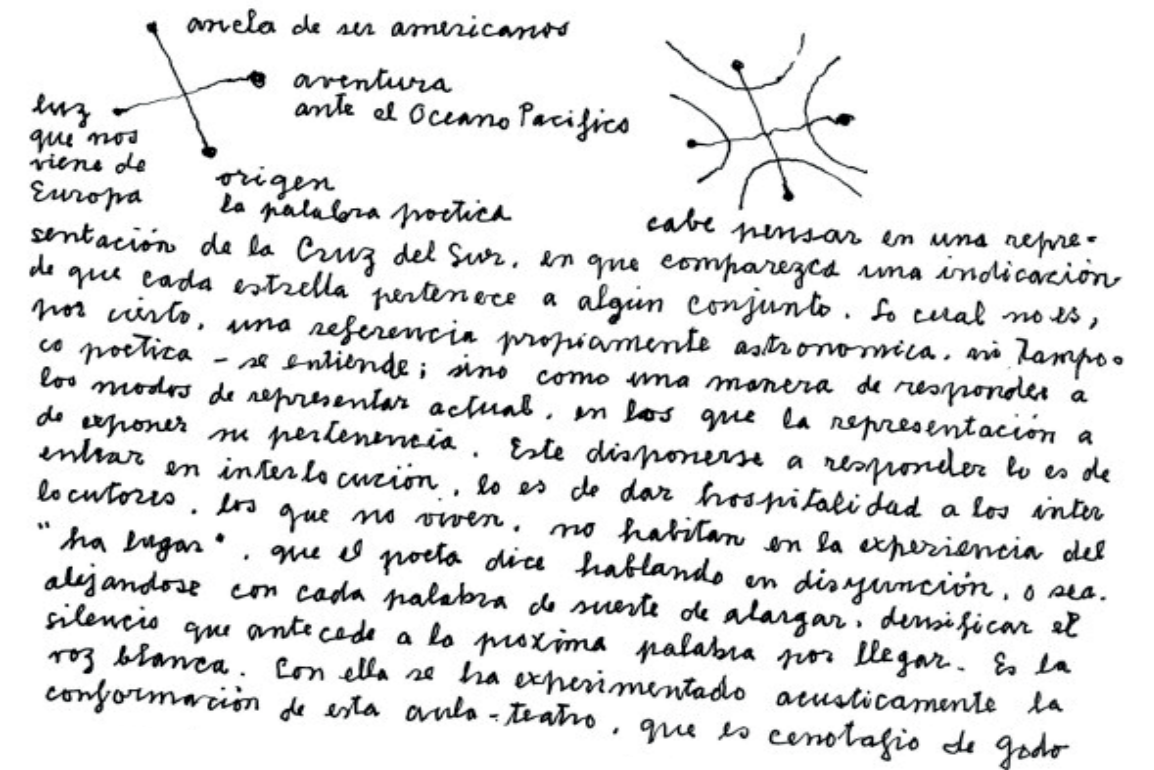 ancla de ser americanos
aventura
ante el Oceano Pacifico
luz
que nos
viene de
Europa
origen
la palabra poetica
cabe pensar en una repre-
sentación de la Cruz del Sur, en que comparezca una indicación
de que cada estrella pertenece a algún conjunto. Lo cual no es,
por cierto, una referencia propiamente astronomica, ni tampo-
co poetica - se entiende; sino como una manera de responder a
los modos de representar actual, en los que la representación a
de exponer su pertenencia. Este disponerse a responder lo es de
entrar en interlocución, lo es de dar hospitalidad a los inter
locutores, los que no viven, no habitan en la experiencia del
"ha lugar", que el poeta dice hablando en disyunción, o sea.
alejandose con cada palabra de suerte de alargar, densificar el
silencio que antecede a la proxima palabra por llegar. Es la
voz blanca. Con ella se ha experimentado acusticamente la
conformación de esta aula-teatro, que es cenotafio de godo